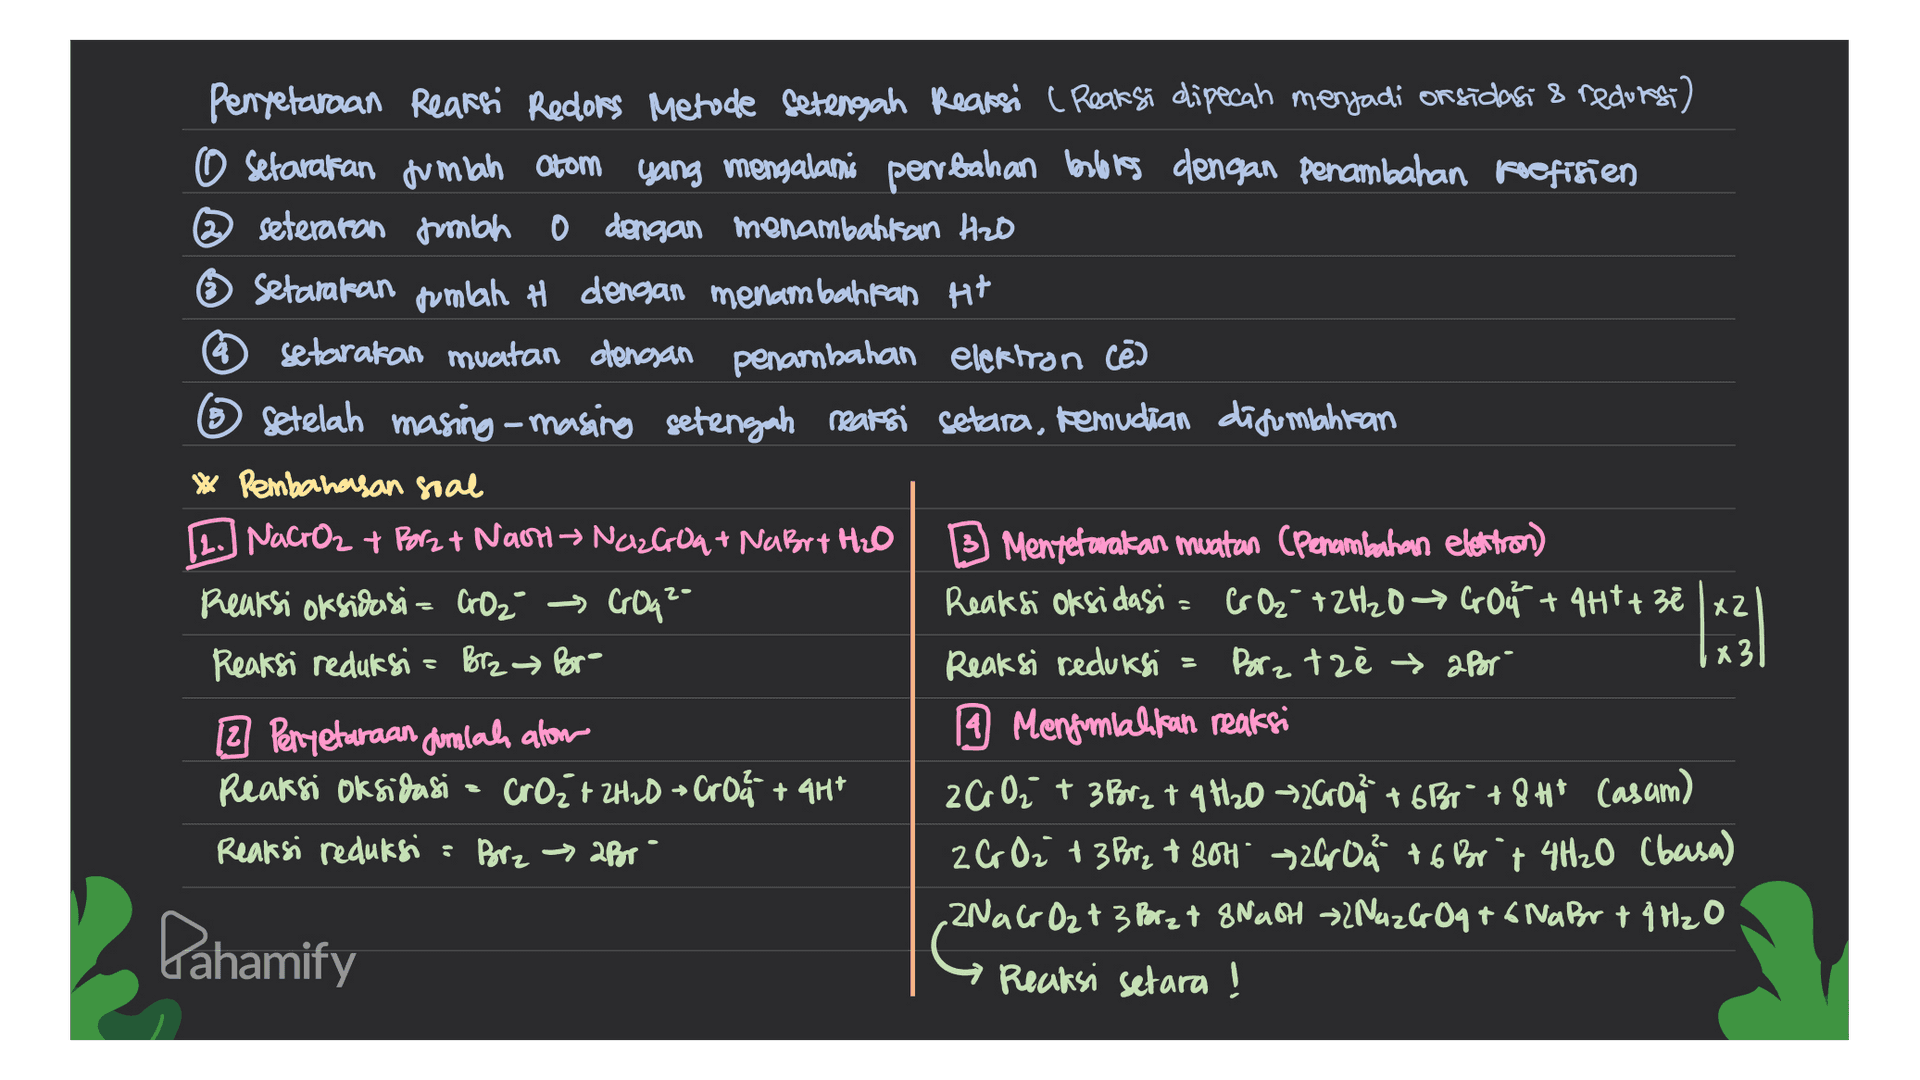 Penyetaraan Reaksi Redoks Metode Setengah Reaksi (Reaksi dipecah menjadi oksidasi & reduksi)
① Setarakan jumlah atom yang mengalami perubahan biloks dengan Penambahan koefisien
② seterakan jumlah O dengan menambahkan H₂O
③ Setarakan jumlah H dengan menambahkan H⁺
④ setarakan muatan dengan penambahan elektron (ē)
⑤ Setelah masing-masing setengah reaksi setara, kemudian dijumlahkan
※ Pembahasan soal
1. NaCrO₂ + Br₂ + NaOH → Na₂CrO₄ + NaBr + H₂O
Reaksi oksidasi = CrO₂⁻ → CrO₄²⁻
Reaksi reduksi = Br₂ → Br⁻
2 Penyetaraan jumlah atom
Reaksi oksidasi = CrO₂⁻ + 2H₂O → CrO₄²⁻ + 4H⁺
Reaksi reduksi = Br₂ → 2Br⁻
3 Menyetarakan muatan (Penambahan elektron)
Reaksi oksidasi = CrO₂⁻ + 2H₂O → CrO₄²⁻ + 4H⁺ + 3ē | x2 |
Reaksi reduksi = Br₂ + 2ē → 2Br⁻ | x3 |
4 Menjumlahkan reaksi
2CrO₂⁻ + 3Br₂ + 4H₂O → 2CrO₄²⁻ + 6Br⁻ + 8H⁺ (asam)
2CrO₂⁻ + 3Br₂ + 8OH⁻ → 2CrO₄²⁻ + 6Br⁻ + 4H₂O (basa)
2NaCrO₂ + 3Br₂ + 8NaOH → 2Na₂CrO₄ + 6NaBr + 4H₂O
→ Reaksi setara !
Pahamify